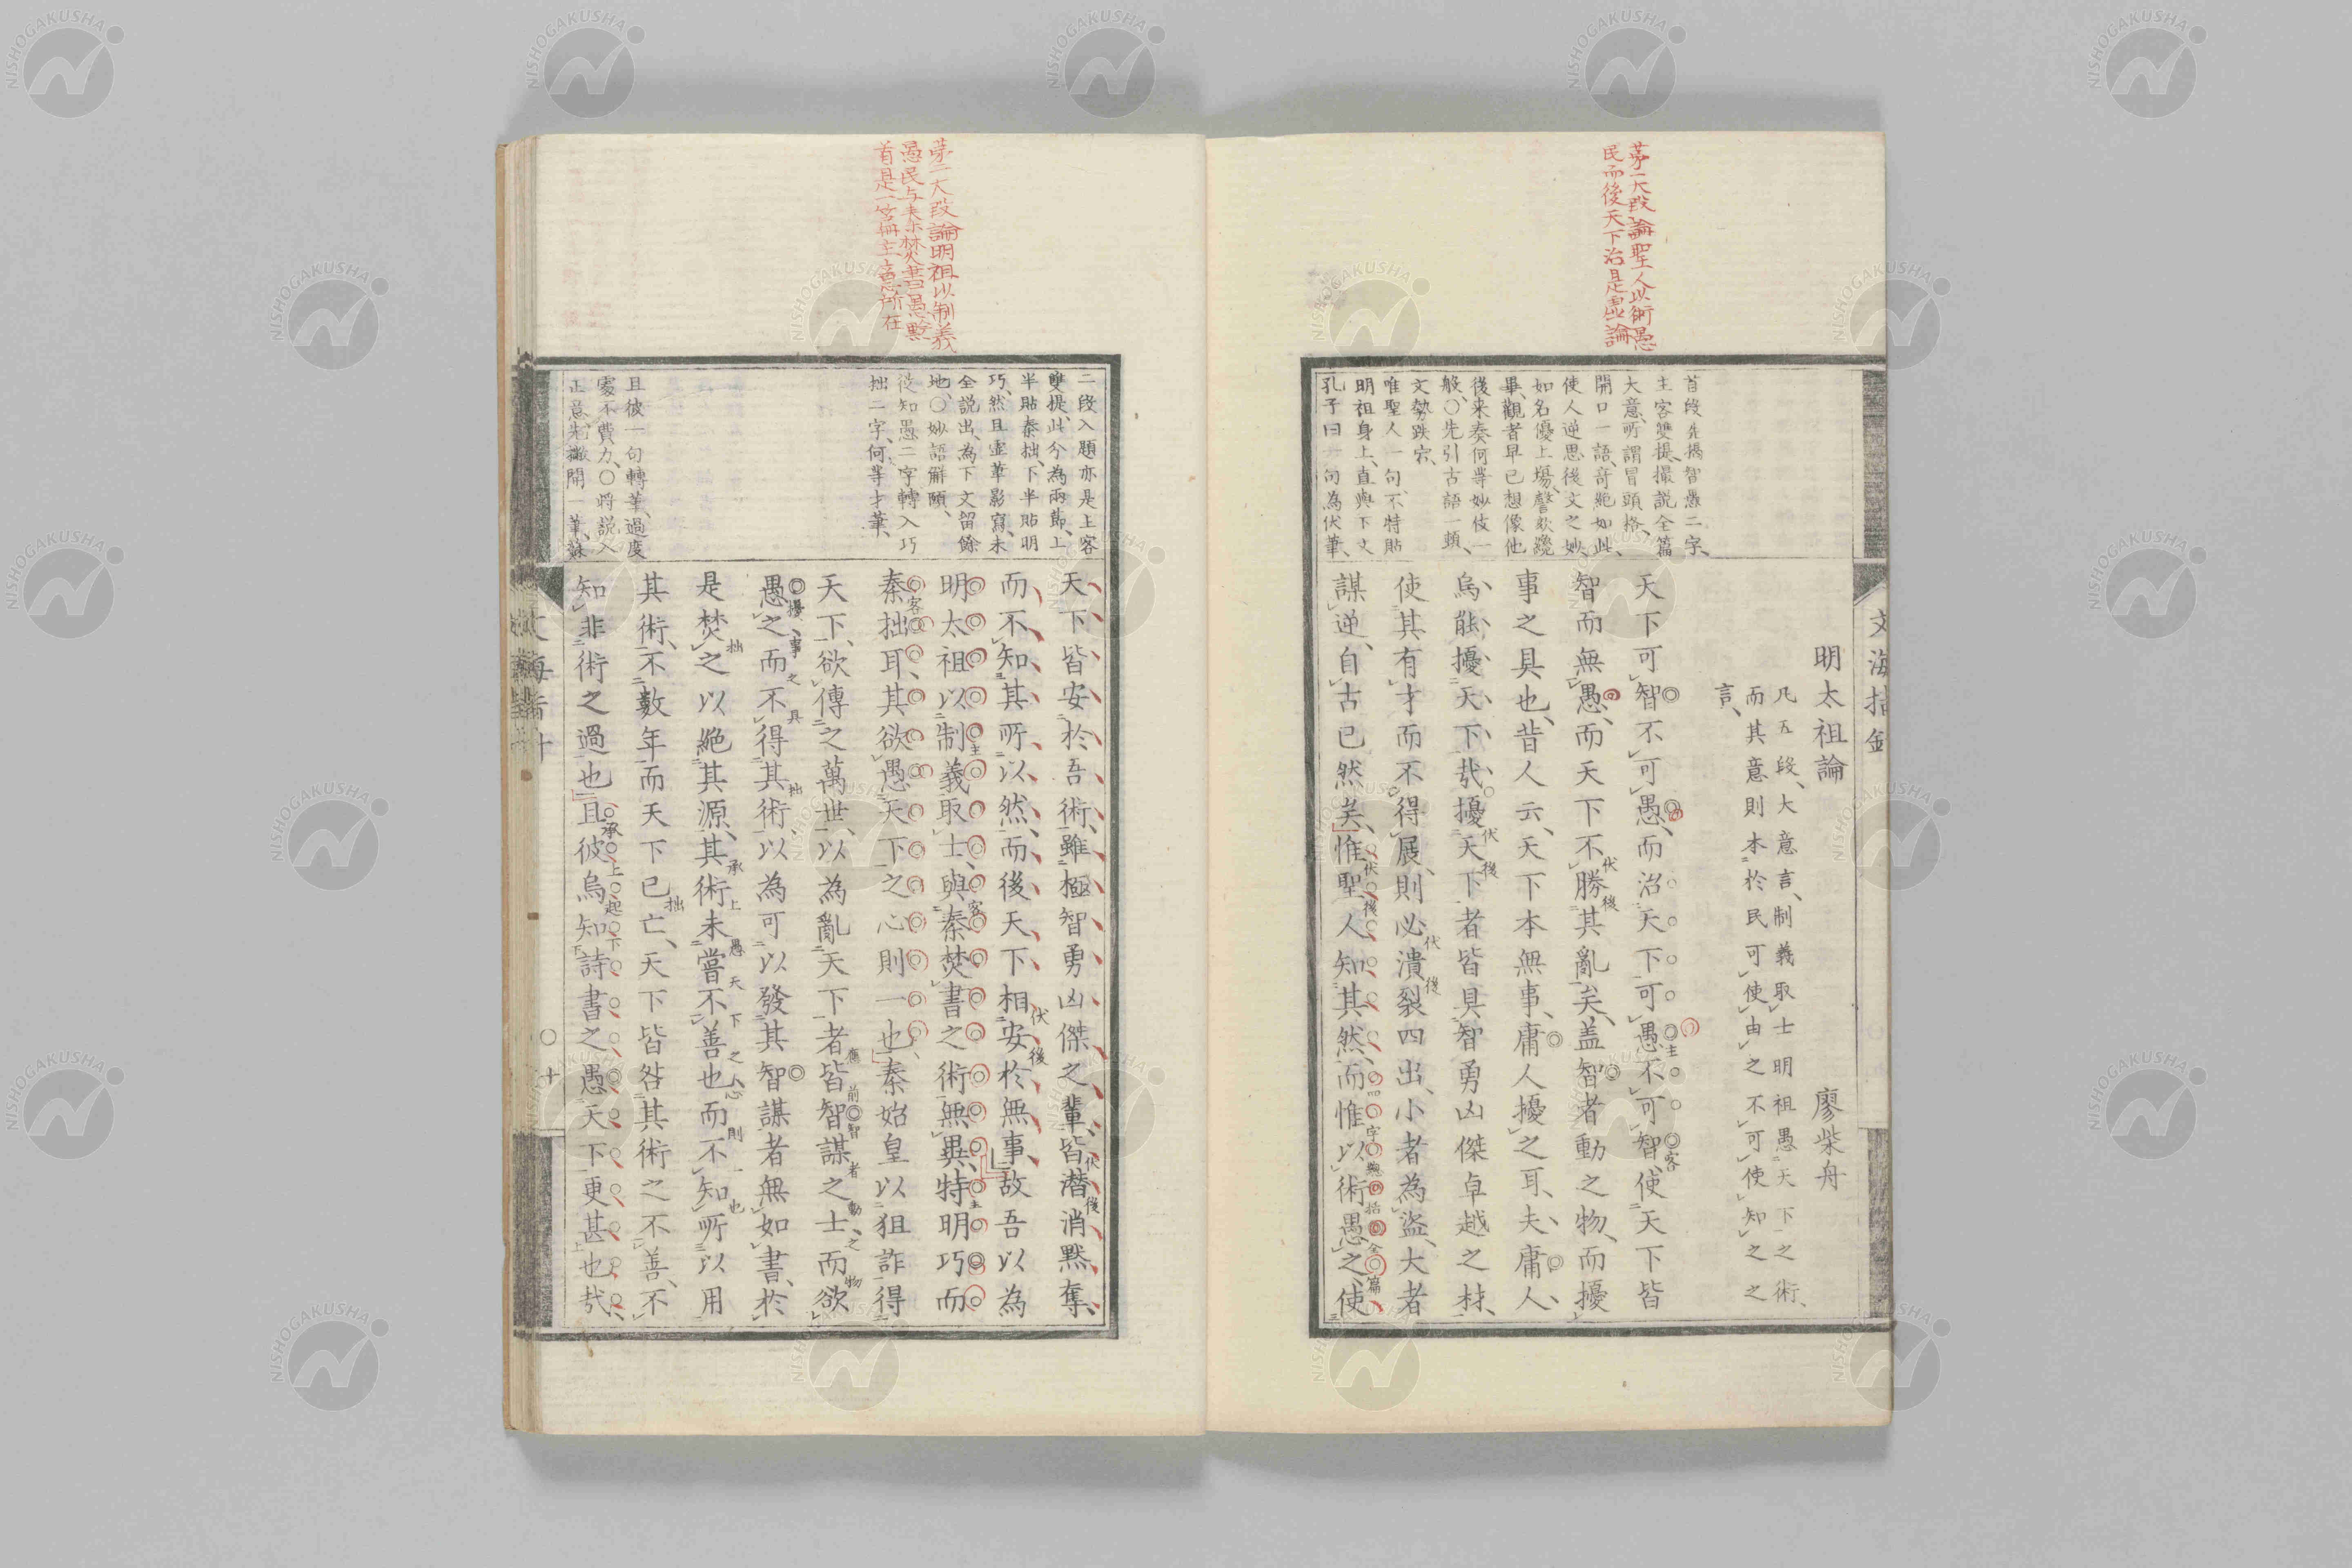 第一大段論聖人以術愚
民而後天下治是虛論
首段先揭智愚二字、
主客雙提、撮説全篇
大意、所謂冒頭格、
開口一語、奇絶如此、
使人逆思後文之妙、
如名優上場、聲欬纔
畢、觀者早已想像他
後来奏何等妙伎一
般、〇先引古語一頓、
文勢跌宕、
唯聖人一句、不特貼
明祖身上、直與下文
孔子曰一句為伏筆、
文海指針
明太祖論　廖柴舟
凡五段、大意言、制義取士明祖愚天下之術、
而其意則本於民可使由之不可使知之之
言、
天下可智不可愚、而治天下可愚不可智、使天下皆
智而無愚、而天下不勝其亂矣、盖智者動之物、而擾
事之具也、昔人云、天下本無事、庸人擾之耳、夫庸人、
烏能擾天下哉、擾天下者皆具智勇凶傑卓越之材、
使其有才而不得展、則必潰裂四出、小者為盜、大者
謀逆、自古已然矣、惟聖人知其然、而惟以術愚之、使
第二大段論明祖以制義
愚民与秦焚書愚黔
首是一
所在
二段入題亦是主客
雙提、此分為兩節、上
半貼秦拙、下半貼明
巧、然且虛筆影寫、未
全説出、為下文留餘
地、〇妙語解頤、
從知愚二字轉入巧
拙二字、何等才筆、
且彼一句轉筆、過度
處不費力、〇将説入
正意、先撇開一筆、蘇
天下皆安於吾術、雖極智勇凶傑之輩、皆潛消黙奪、
而不知其所以然、而後天下相安於無事、故吾以為
明太祖以制義取士、與秦焚書之術無異、特明巧而
秦拙耳、其欲愚天下之心則一也、秦始皇以狙詐得
天下、欲傳之萬世、以為亂天下者皆智謀之士、而欲
愚之而不得其術、以為可以發其智謀者無如書、於
是焚之以絶其源、其術未嘗不善也、而不知所以用
其術、不數年而天下已亡、天下皆咎其術之不善、不
知非術之過也、且彼烏知詩書之愚天下更甚也哉、
十